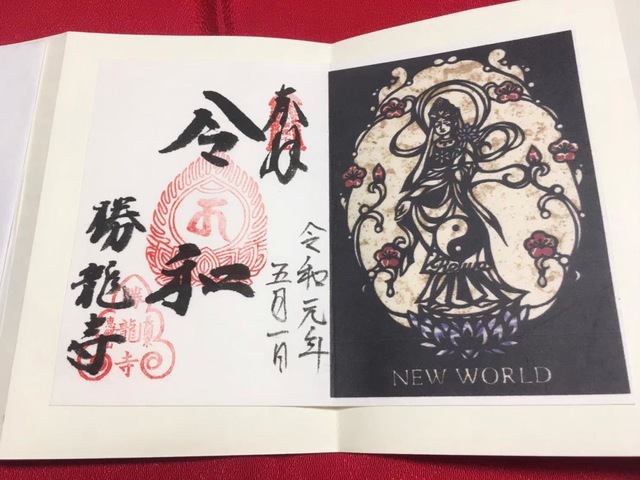 奉拝
令和
令和元年
五月一日
勝龍寺
NEW WORLD